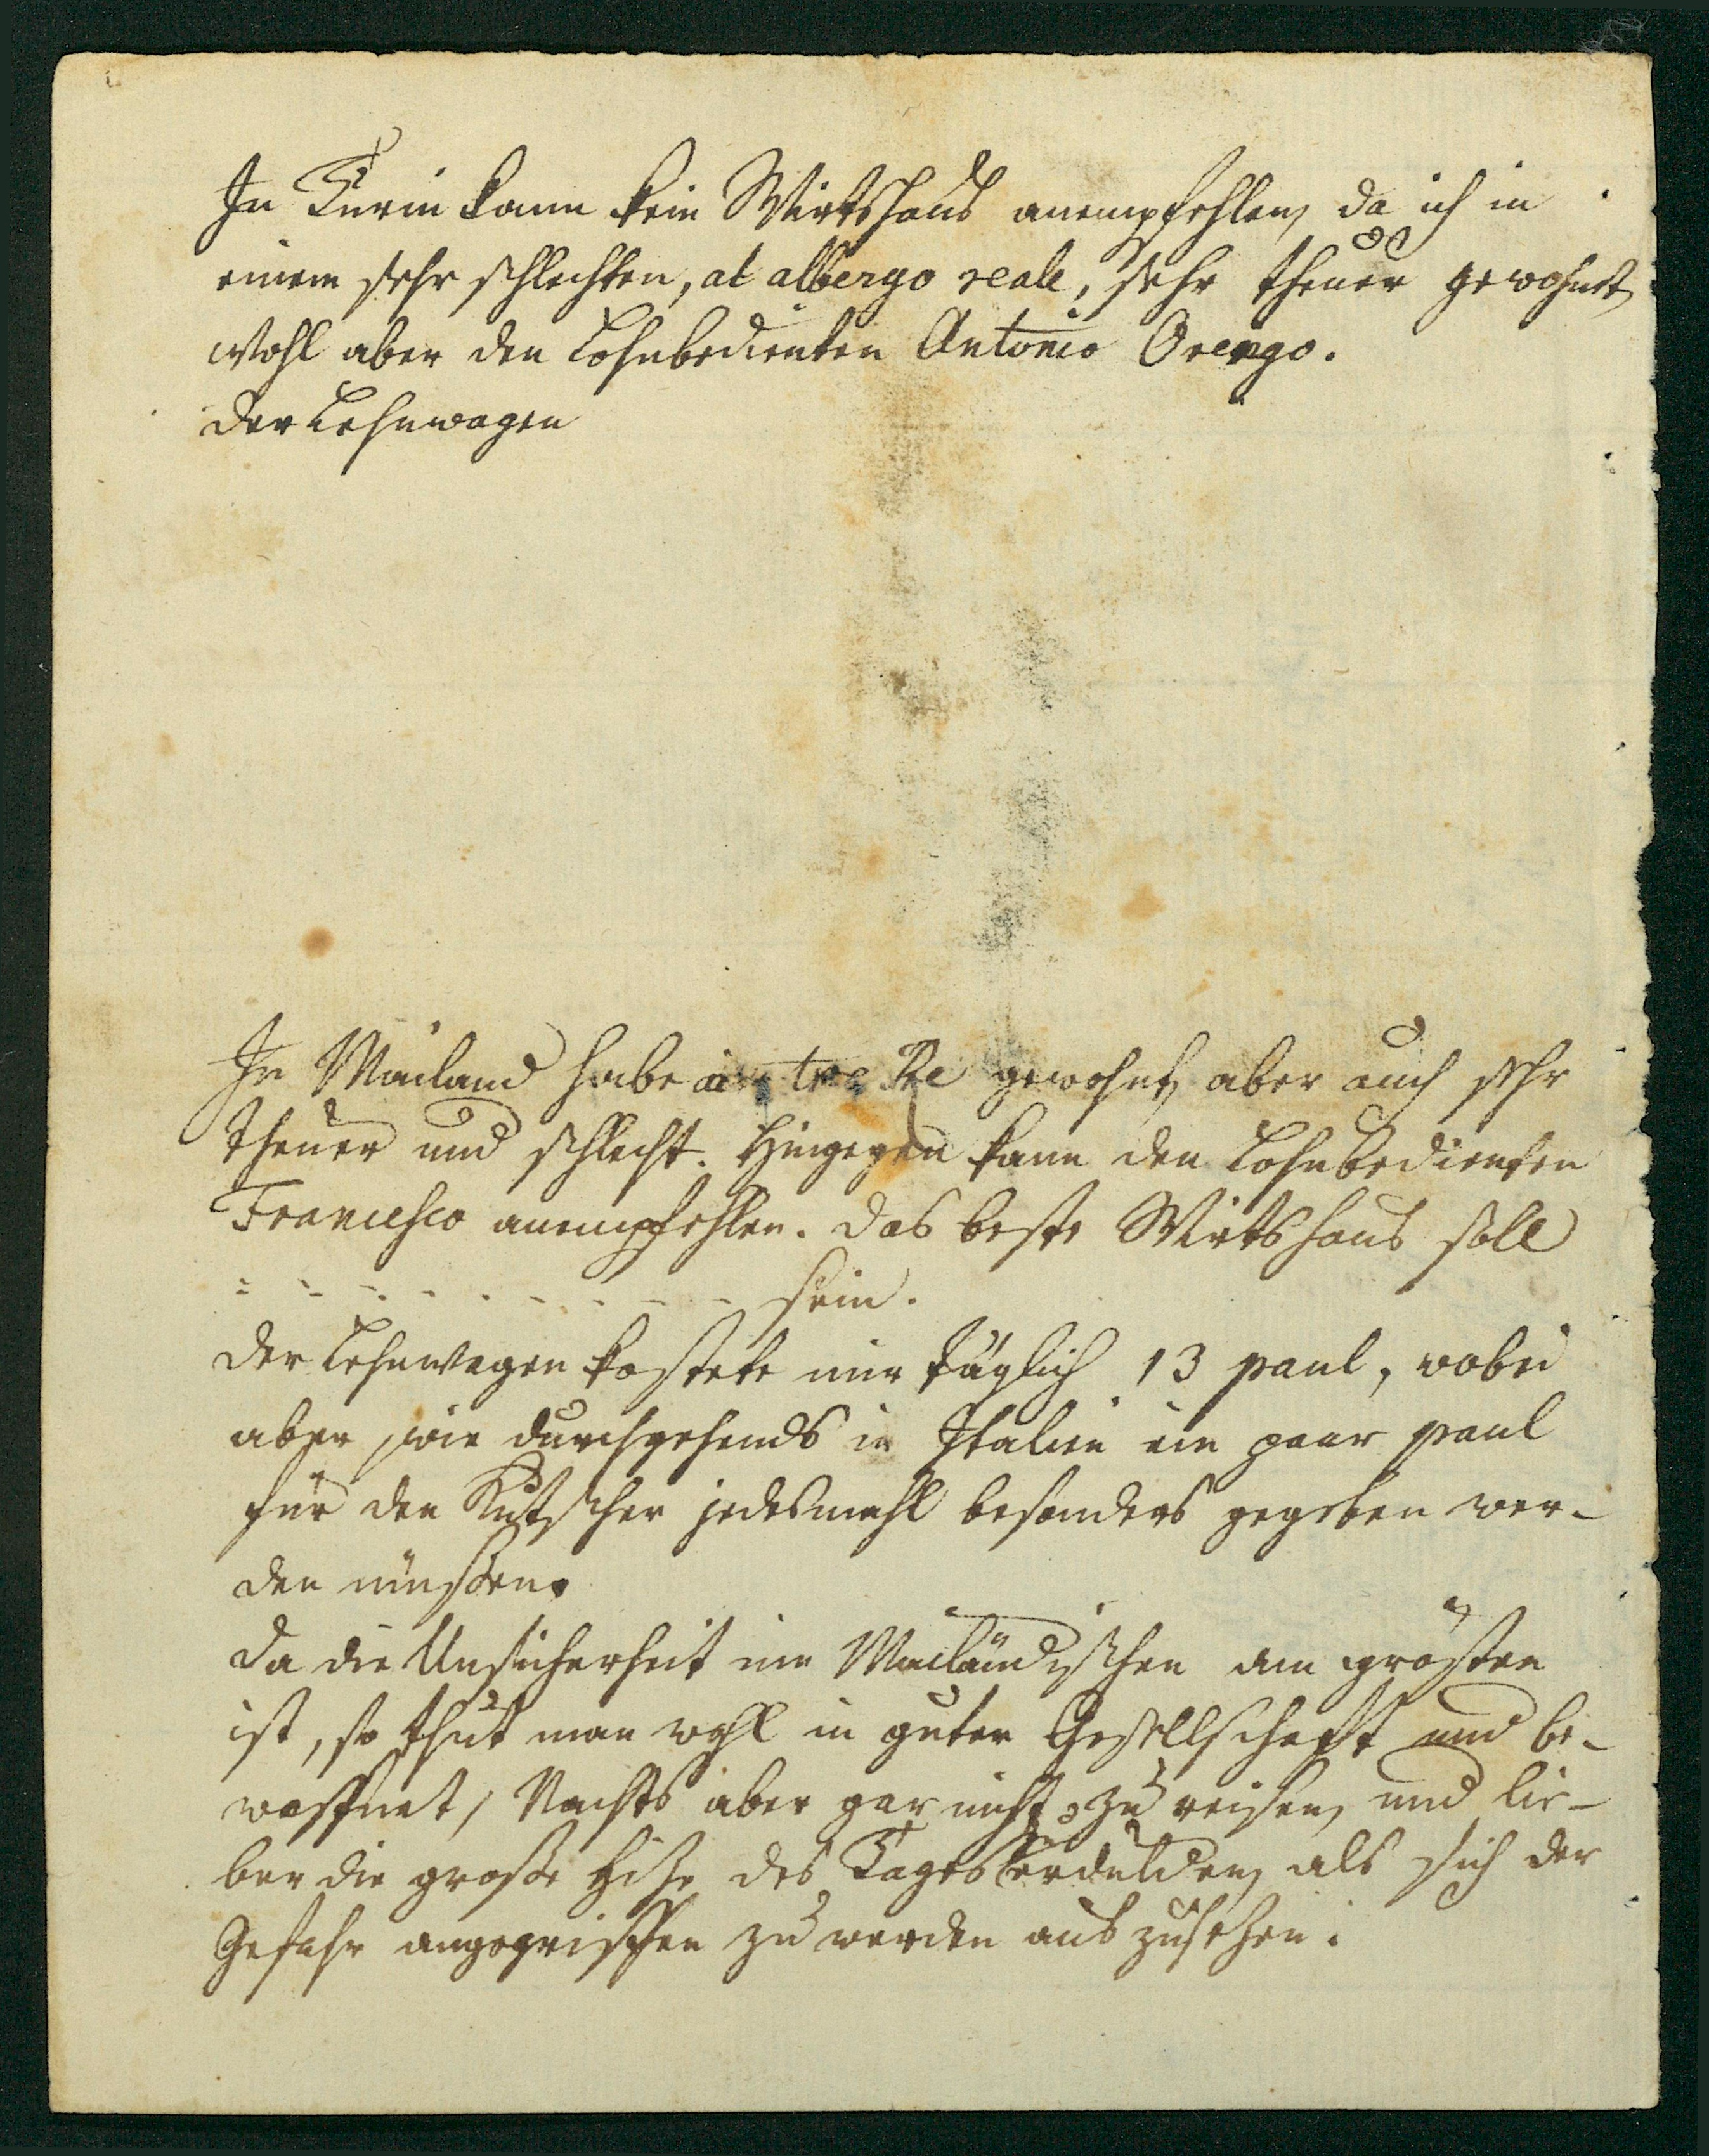 In Turin kann kein Wirtshaus anempfehlen, da ich in
einem sehr schlechten, al albergo reale, sehr theuer gewohnet,
wohl aber den Lohnbedienten Antonio Orengo.
Der Lehnwagen
In Mailand habe ai tre Re gewohnt, aber auch sehr
theuer und schlecht. Hingegen kann den Lohnbedienten
Francesco anempfehlen. Das beste Wirtshaus soll
- - - - - - - - - sein.
Der Lehnwagen kostete mir täglich 13 paul, wobei
aber, wie durchgehends in Italien ein paar paul
für den Kutscher jedesmahl besonders gegeben wer-
den müssen.
Da die Unsicherheit im Mailändischen am grösten
ist, so thut man wohl in guter Gesellschafft und be-
waffnet, Nachts aber gar nicht, zu reisen, und lie-
ber die große Hize des Tages erdulden, als sich der
Gefahr angegriffen zu werden auszusezen.